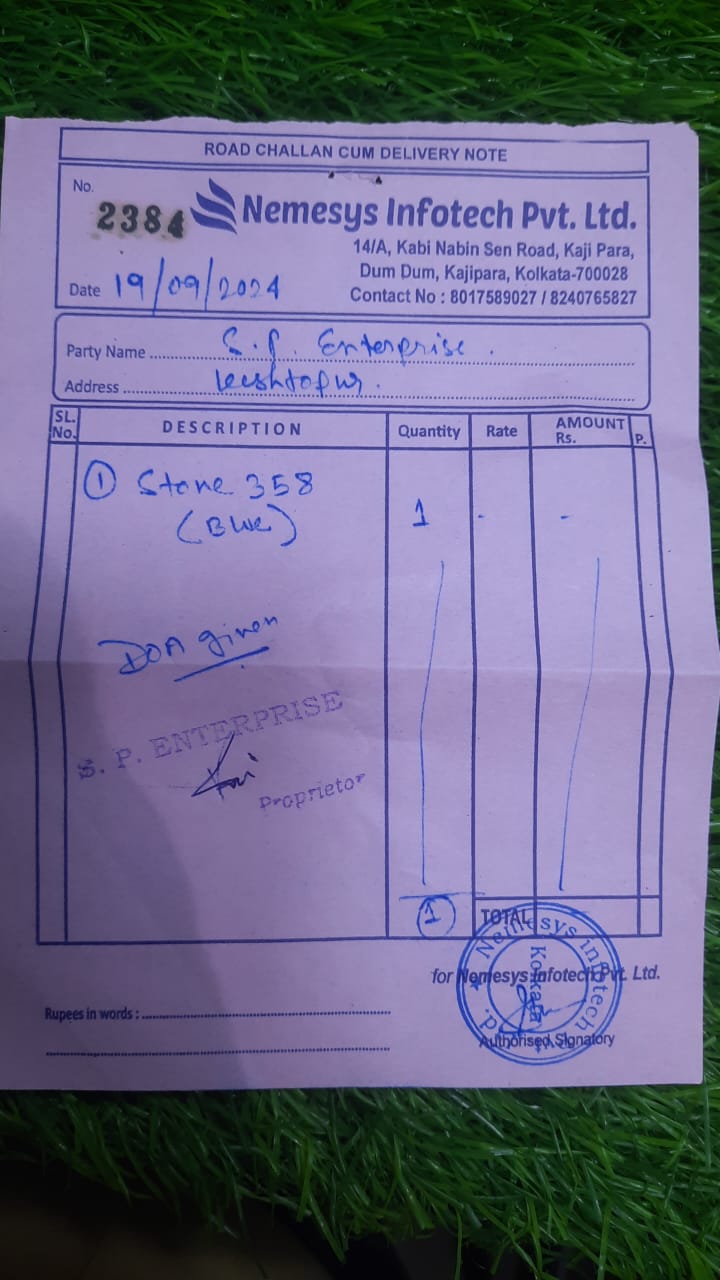 ROAD CHALLAN CUM DELIVERY NOTE
No. 2384
Nemesys Infotech Pvt. Ltd.
14/A, Kabi Nabin Sen Road, Kaji Para,
Dum Dum, Kajipara, Kolkata-700028
Contact No : 8017589027 / 8240765827
Date 19/09/2024
Party Name S.P. Enterprise.
Address Keshtopur.
SL. No. DESCRIPTION Quantity Rate AMOUNT Rs. P.
① Stone 358 1 - -
(Blue)
DOA given
S. P. ENTERPRISE
Proprietor
1 TOTAL
for Nemesys Infotech Pvt. Ltd.
Nemesys infotech
Kolkata
Rupees in words :
Authorised Signatory